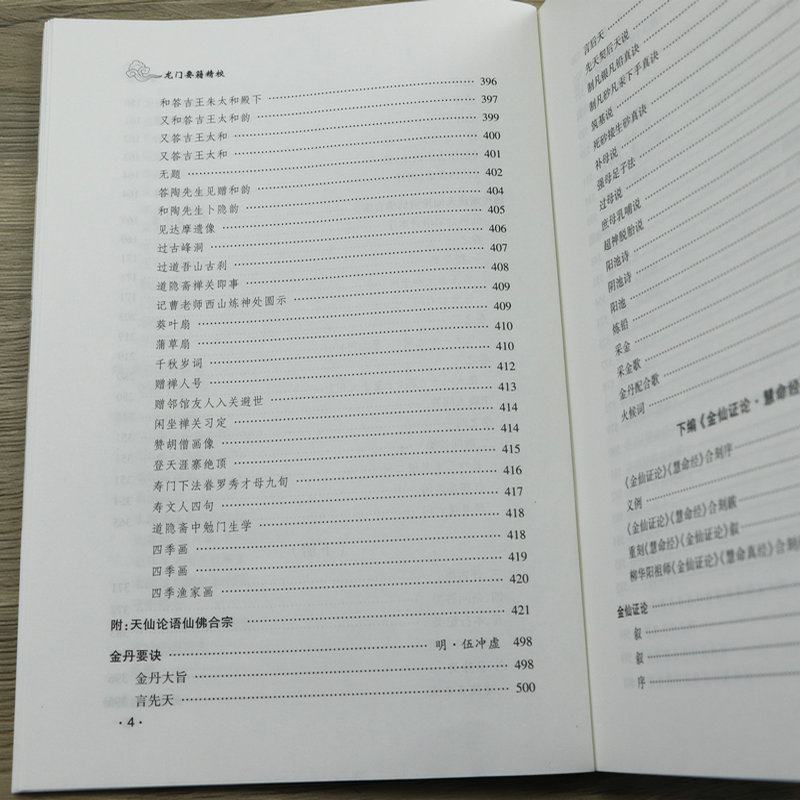 龙门要籍精校
和答吉王朱太和殿下 396
又和答吉王太和韵 397
又答吉王太和 399
又答吉王太和 400
无题 401
答陶先生见赠和韵 402
和陶先生卜隐韵 404
见达摩遗像 405
过古峰洞 406
过道吾山古刹 407
道隐斋禅关即事 408
记曹老师西山炼神处图示 409
葵叶扇 409
蒲草扇 410
千秋岁词 410
赠禅人号 412
赠邻馆友人入关避世 413
闲坐禅关习定 414
赞胡僧画像 414
登天涯寨绝顶 415
寿门下法眷罗秀才母九旬 416
寿文人四句 417
道隐斋中勉门生学 418
四季画 418
四季画 419
四季渔家画 420
附：天仙论语仙佛合宗 421
金丹要诀 明·伍冲虚 498
金丹大旨 498
言先天 500
·4·
言后天
先天契后天说
制凡银凡铅真诀
制凡砂凡汞下手真诀
筑基说
死砂接生砂真诀
补母说
强母足子法
过母说
庶母乳哺说
超神脱胎说
阳池诗
阴池诗
阳池
炼铅
采金
采金歌
金丹配合歌
火候词
下编《金仙证论·慧命经
《金仙证论》《慧命经》合刻序
义例
《金仙证论》《慧命经》合刻跋
重刻《慧命经》《金仙证论》叙
柳华阳祖师《金仙证论》《慧命真经》合刻
金仙证论
叙
叙
序